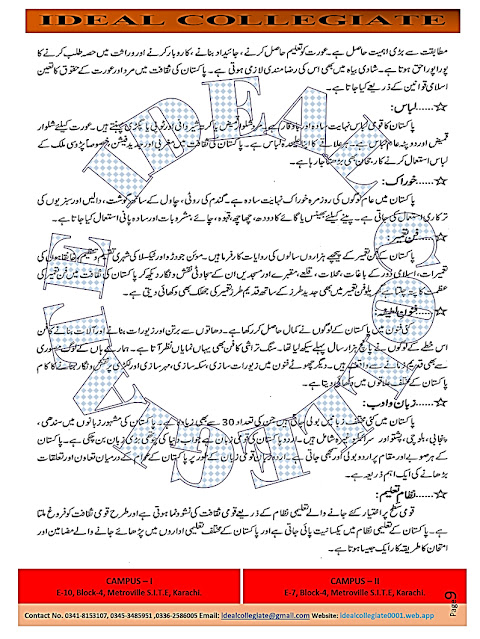 IDEAL COLLEGIATE
مطابقت سے بڑی اہمیت حاصل ہے۔ عورت کو تعلیم حاصل کرنے، جائیداد بنانے، کاروبار کرنے اور وراثت میں حصہ طلب کرنے کا
پورا پورا حق ہوتا ہے۔ شادی بیاہ میں بھی اس کی رضامندی لازمی ہوتی ہے۔ پاکستان کی ثقافت میں مرد اور عورت کے حقوق کا تعین
اسلامی قوانین کے ذریعے کیا جاتا ہے۔
☆......لباس:
پاکستان کا قومی لباس نہایت سادہ اور باوقار ہے۔ مرد شلوار قمیض یا کرتہ شیروانی اور ٹوپی یا پگڑی پہنتے ہیں۔ عورت کیلئے شلوار
قمیض اور دوپٹہ عام لباس ہے۔ ہر علاقے کا اپنا پسندیدہ لباس ہے۔ پاکستان کی ثقافت میں مغربی اور جدید فیشن خصوصاً پڑوسی ملک کے
لباس استعمال کرنے کا رجحان بھی بڑھتا جا رہا ہے۔
☆......خوراک:
پاکستان میں عام لوگوں کی روز مرہ خوراک نہایت سادہ ہے۔ گندم کی روٹی، چاول کے ساتھ گوشت، دالیں اور سبزیوں کی
ترکاری استعمال کی جاتی ہے۔ پینے کیلئے بھینس یا گائے کا دودھ، چھاچھ، قہوہ، چائے، مشروبات اور سادہ پانی استعمال کیا جاتا ہے۔
☆......فن تعمیر:
پاکستان کے فن تعمیر کے پیچھے ہزاروں سالوں کی روایات کارفرما ہیں۔ موئن جودڑو اور ٹیکسلا کی شہری تقسیم و تنظیم، بدھا خانقاہوں کی
تعمیرات، اسلامی دور کے باغات، محلات، قلعے، مقبرے اور مسجدیں ان کے سجاوٹی نقش و نگار دیکھ کر پاکستان کی ثقافت میں فن تعمیر کی
عظمت کا پتہ چلتا ہے۔ فن تعمیر میں بھی جدید طرز کے ساتھ قدیم طرز تعمیر کی جھلک بھی دکھائی دیتی ہے۔
☆......فنون لطیفہ:
کئی فنون میں پاکستان کے لوگوں نے کمال حاصل کر رکھا ہے۔ دھاتوں سے برتن اور زیورات بنانے اور آلات بنانے کا فن
اس خطے کے لوگوں نے پانچ ہزار سال پہلے سیکھ لیا تھا۔ سنگ تراشی کا فن بھی یہاں نمایاں نظر آتا ہے۔ ہمارے ہاں کے لوگ مصوری
سے بھی تعریف بنانے سے واقف ہیں۔ دیگر چھوٹے فنون میں زیورات سازی، سکہ سازی، مہر سازی اور لکڑی پر نقش و نگار بنانے کا کام
پاکستان کے مختلف علاقوں میں دکھائی دیتا ہے۔
☆......زبان و ادب:
پاکستان میں کئی مختلف زبانیں بولی جاتی ہیں جن کی تعداد 30 سے بھی زیادہ ہے۔ پاکستان کی مشہور زبانوں میں سندھی،
پنجابی، بلوچی، پشتو اور سرائیکی وغیرہ شامل ہیں۔ اردو پاکستان کی قومی زبان ہے جو اب دنیا کی چوتھی بڑی زبان بن چکی ہے۔ پاکستان
کے ہر صوبے اور مقام پر اردو بولی اور سمجھی جاتی ہے۔ اردو زبان قومی زبان کے طور پر پاکستان کے عوام کے درمیان تعاون اور تعلقات
بڑھانے کی ایک اہم ذریعہ ہے۔
☆......نظام تعلیم:
قومی سطح پر اختیار کئے جانے والے تعلیمی نظام کے ذریعے قومی ثقافت کی نشوونما ہوتی ہے اور طرح قومی ثقافت کو فروغ ملتا
ہے۔ پاکستان کے تعلیمی نظام میں یکسانیت پائی جاتی ہے اور پاکستان کے مختلف تعلیمی اداروں میں پڑھائے جانے والے مضامین اور
امتحان کا طریقہ کار ایک جیسا ہوتا ہے۔
IDEAL COLLEGIATE
CAMPUS – I
E-10, Block-4, Metroville S.I.T.E, Karachi.
CAMPUS – II
E-7, Block-4, Metroville S.I.T.E, Karachi.
Page 9
Contact No. 0341-8153107, 0345-3485951 ,0336-2586005 Email: idealcollegiate@gmail.com Website: idealcollegiate0001.web.app